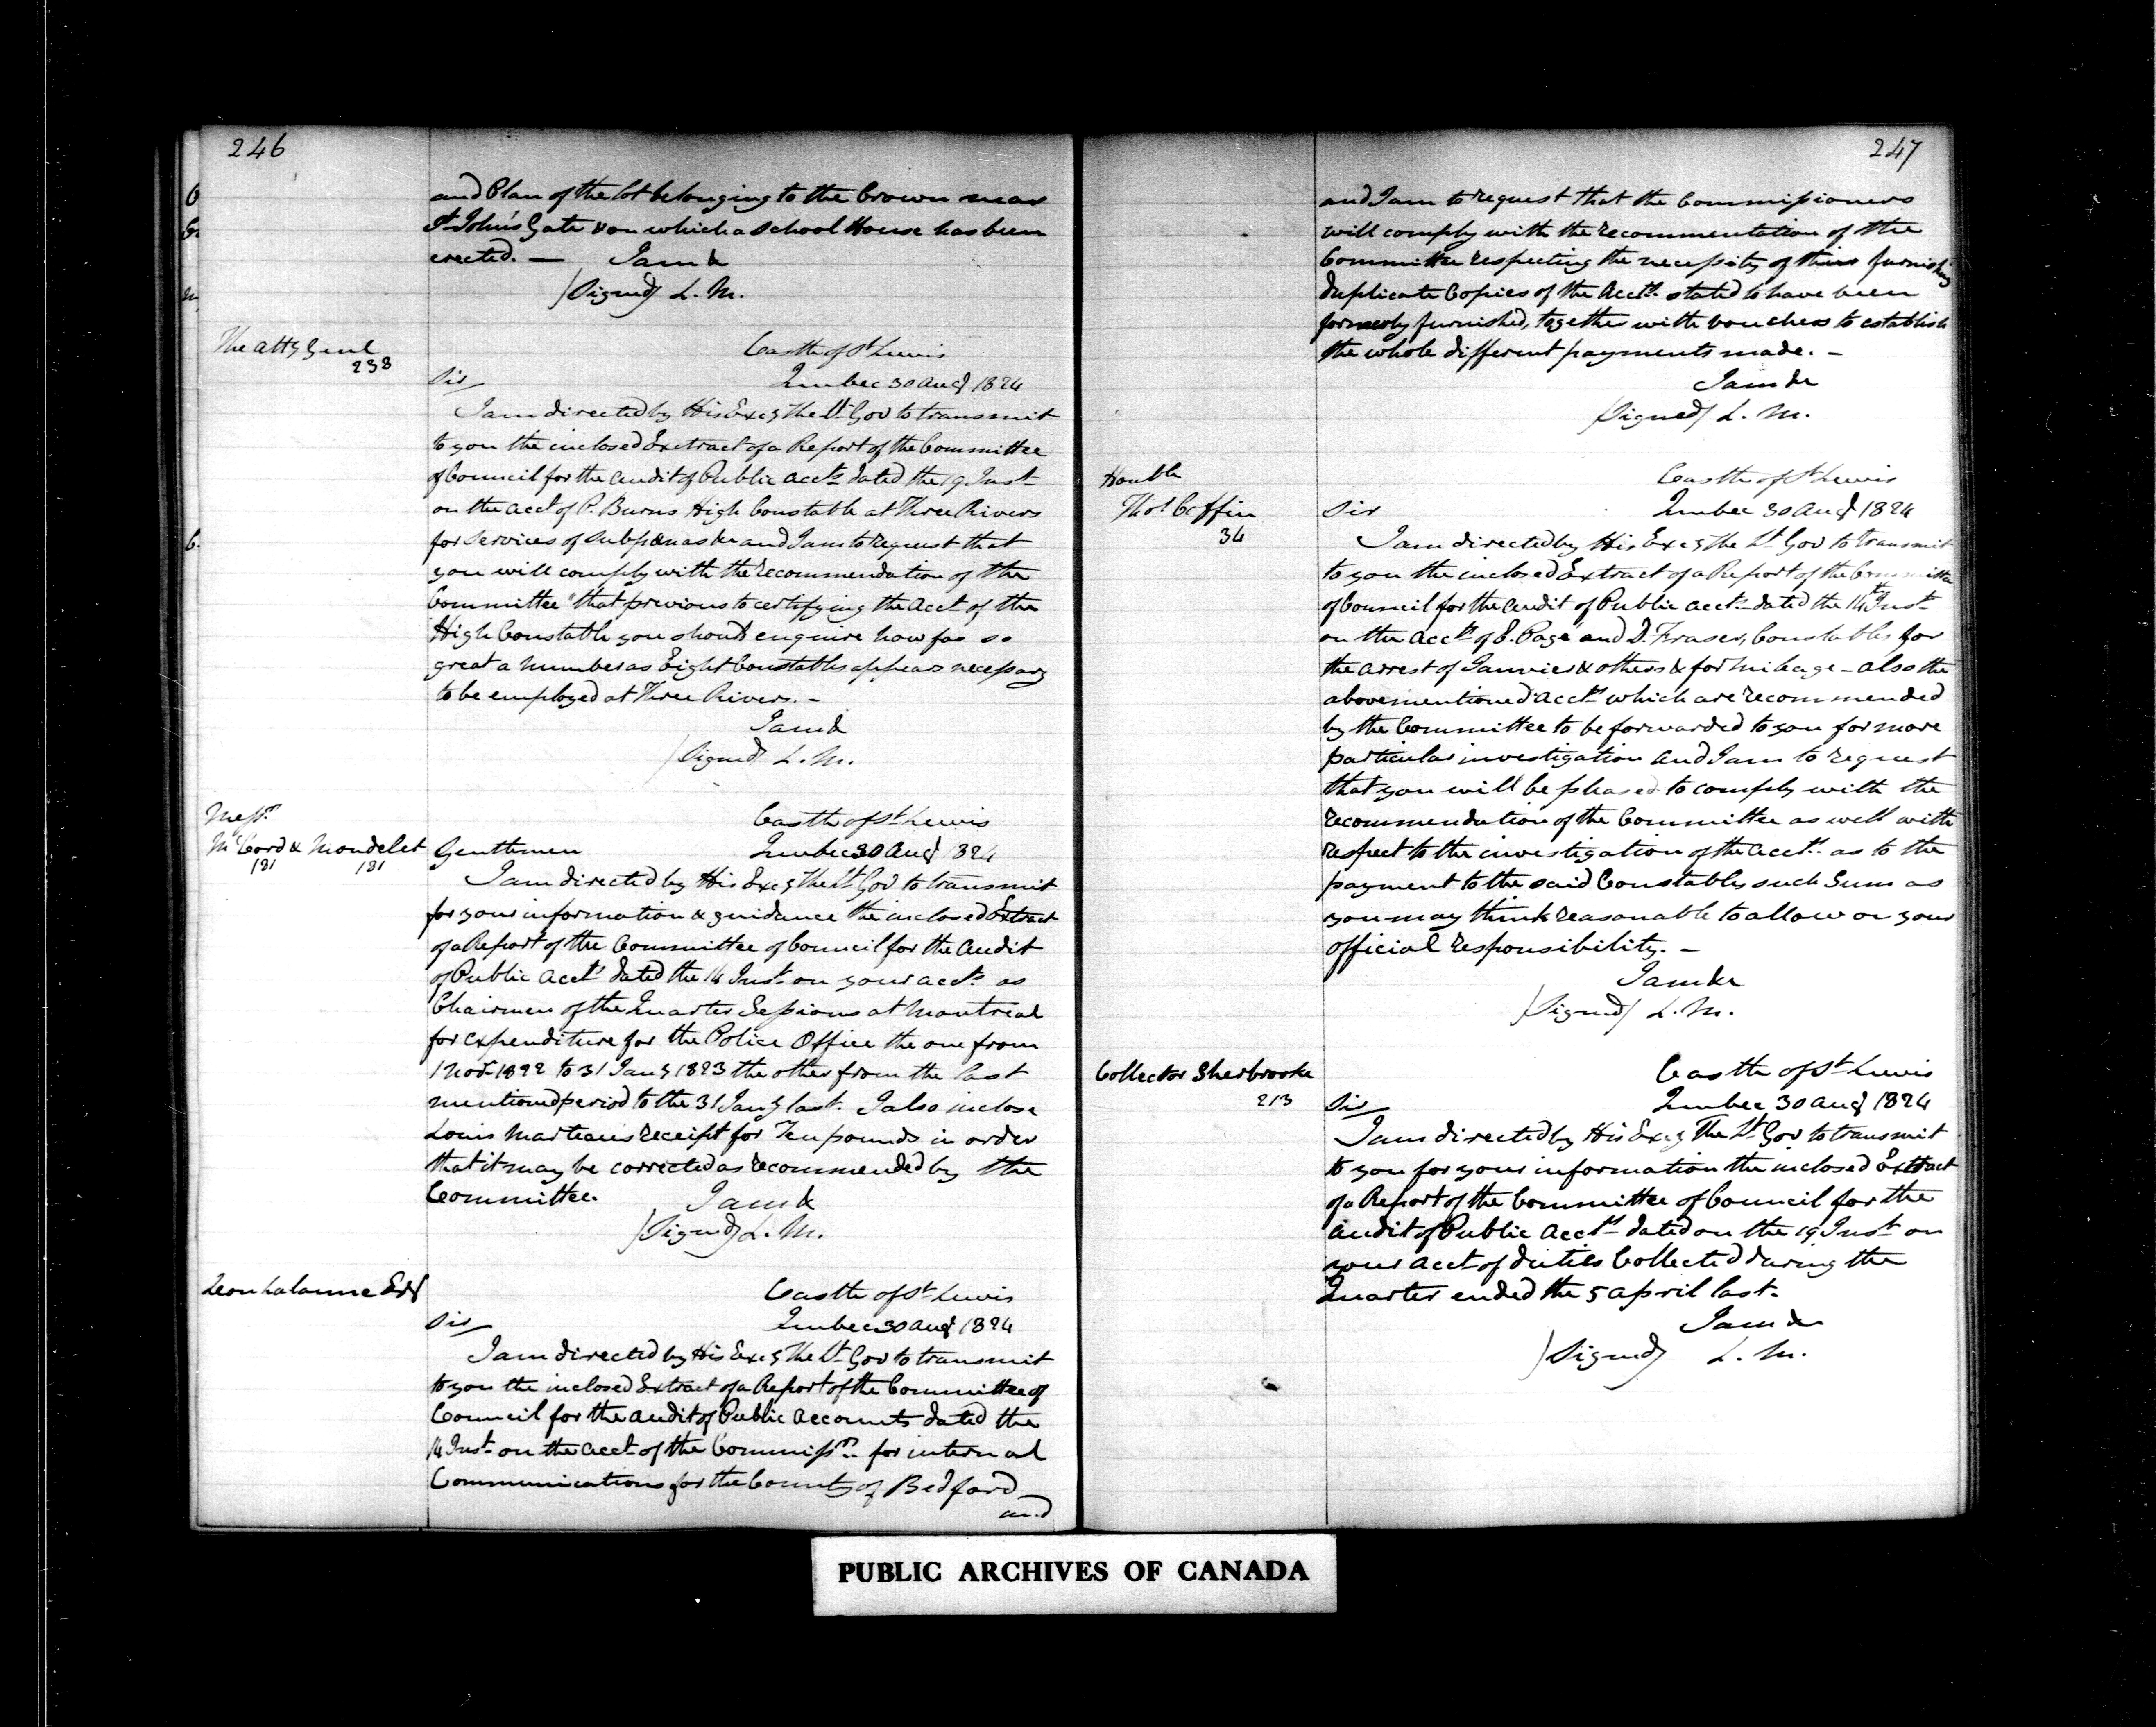 246
and Plan of the lot belonging to the Crown near
St John's Gate & on which a School House has been
erected. — I am &
/Signed/ L. M.
The Atty Genl
238
Castle of St Lewis
Sir Quebec 30 Aug 1824
I am directed by His Excy The Lt Gov to transmit
to you the inclosed Exctract of a Report of the Committee
of Council for the Audit of Public Accts dated the 19 Inst
on the Acct of P. Burns High Constable at Three Rivers
for Services of Subpœnas &c and I am to request that
you will comply with the recommendation of the
Committee "that previous to certifying the Acct of the
High Constable you should enquire how far so
great a number as Eight Constables appears necessary
to be employed at Three Rivers. -
I am &
/Signed/ L. M.
Messrs
McCord & Mondelet
181 181
Castle of St Lewis
Gentlemen Quebec 30 Aug 1824
I am directed by His Excy The Lt Gov to transmit
for your information & guidance the inclosed Extract
of a Report of the Committee of Council for the Audit
of Public Accts dated the 14 Inst on your Accts as
Chairmen of the Quarter Sessions at Montreal
for expenditure for the Police Office the one from
1 Novr 1822 to 31 Jany 1823 the other from the last
mentioned period to the 31 Jany last. I also inclose
Louis Marteaus receipt for Ten pounds in order
that it may be corrected as recommended by the
Committee. I am &
/Signed/ L. M.
Leon Lalanne Esq
Castle of St Lewis
Sir Quebec 30 Aug 1824
I am directed by His Excy The Lt Gov to transmit
to you the inclosed Extract of a Report of the Committee of
Council for the Audit of Public Accounts dated the
14 Inst on the Acct of the Commissrs for internal
Communications for the County of Bedford
and
247
and I am to request that the Commissioners
will comply with the recommentation of the
Committee respecting the necessity of their furnishing
duplicate Copies of the Accts stated to have been
formerly furnished, together with vouchers to establish
the whole different payments made. -
I am &c
/Signed/ L. M.
Honble
Thos Coffin
34
Castle of St Lewis
Sir Quebec 30 Aug 1824
I am directed by His Excy The Lt Gov to transmit
to you the inclosed Extract of a Report of the Committee
of Council for the Audit of Public Accts dated the 14th Inst
on the Accts of E. Page and D. Fraser, Constables for
the arrest of Janvier & others & for mileage - also the
abovementioned Accts which are recommended
by the Committee to be forwarded to you for more
particular investigation and I am to request
that you will be pleased to comply with the
recommendation of the Committee as well with
respect to the investigation of the Accts as to the
payment to the said Constables such Sum as
you may think reasonable to allow on your
official responsibility. -
I am &c
/Signed/ L. M.
Collector Sherbrooke
213
Castle of St Lewis
Sir Quebec 30 Aug 1824
I am directed by His Excy The Lt Gov to transmit
to you for your information the inclosed Extract
of a Report of the Committee of Council for the
Audit of Public Accts dated on the 19 Inst on
your Acct of duties Collected during the
Quarter ended the 5 April last.
I am &
/Signed/ L. M.
PUBLIC ARCHIVES OF CANADA